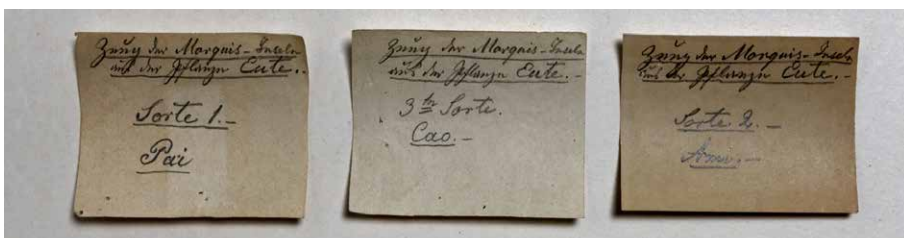 Zeug der Marquis-Inseln
aus der Pflanze Eute.-
Sorte 1.-
Pai
Zeug der Marquis-Inseln
aus der Pflanze Eute.-
3te Sorte.
Cao.-
Zeug der Marquis-Inseln
aus der Pflanze Eute.-
Sorte 2.-